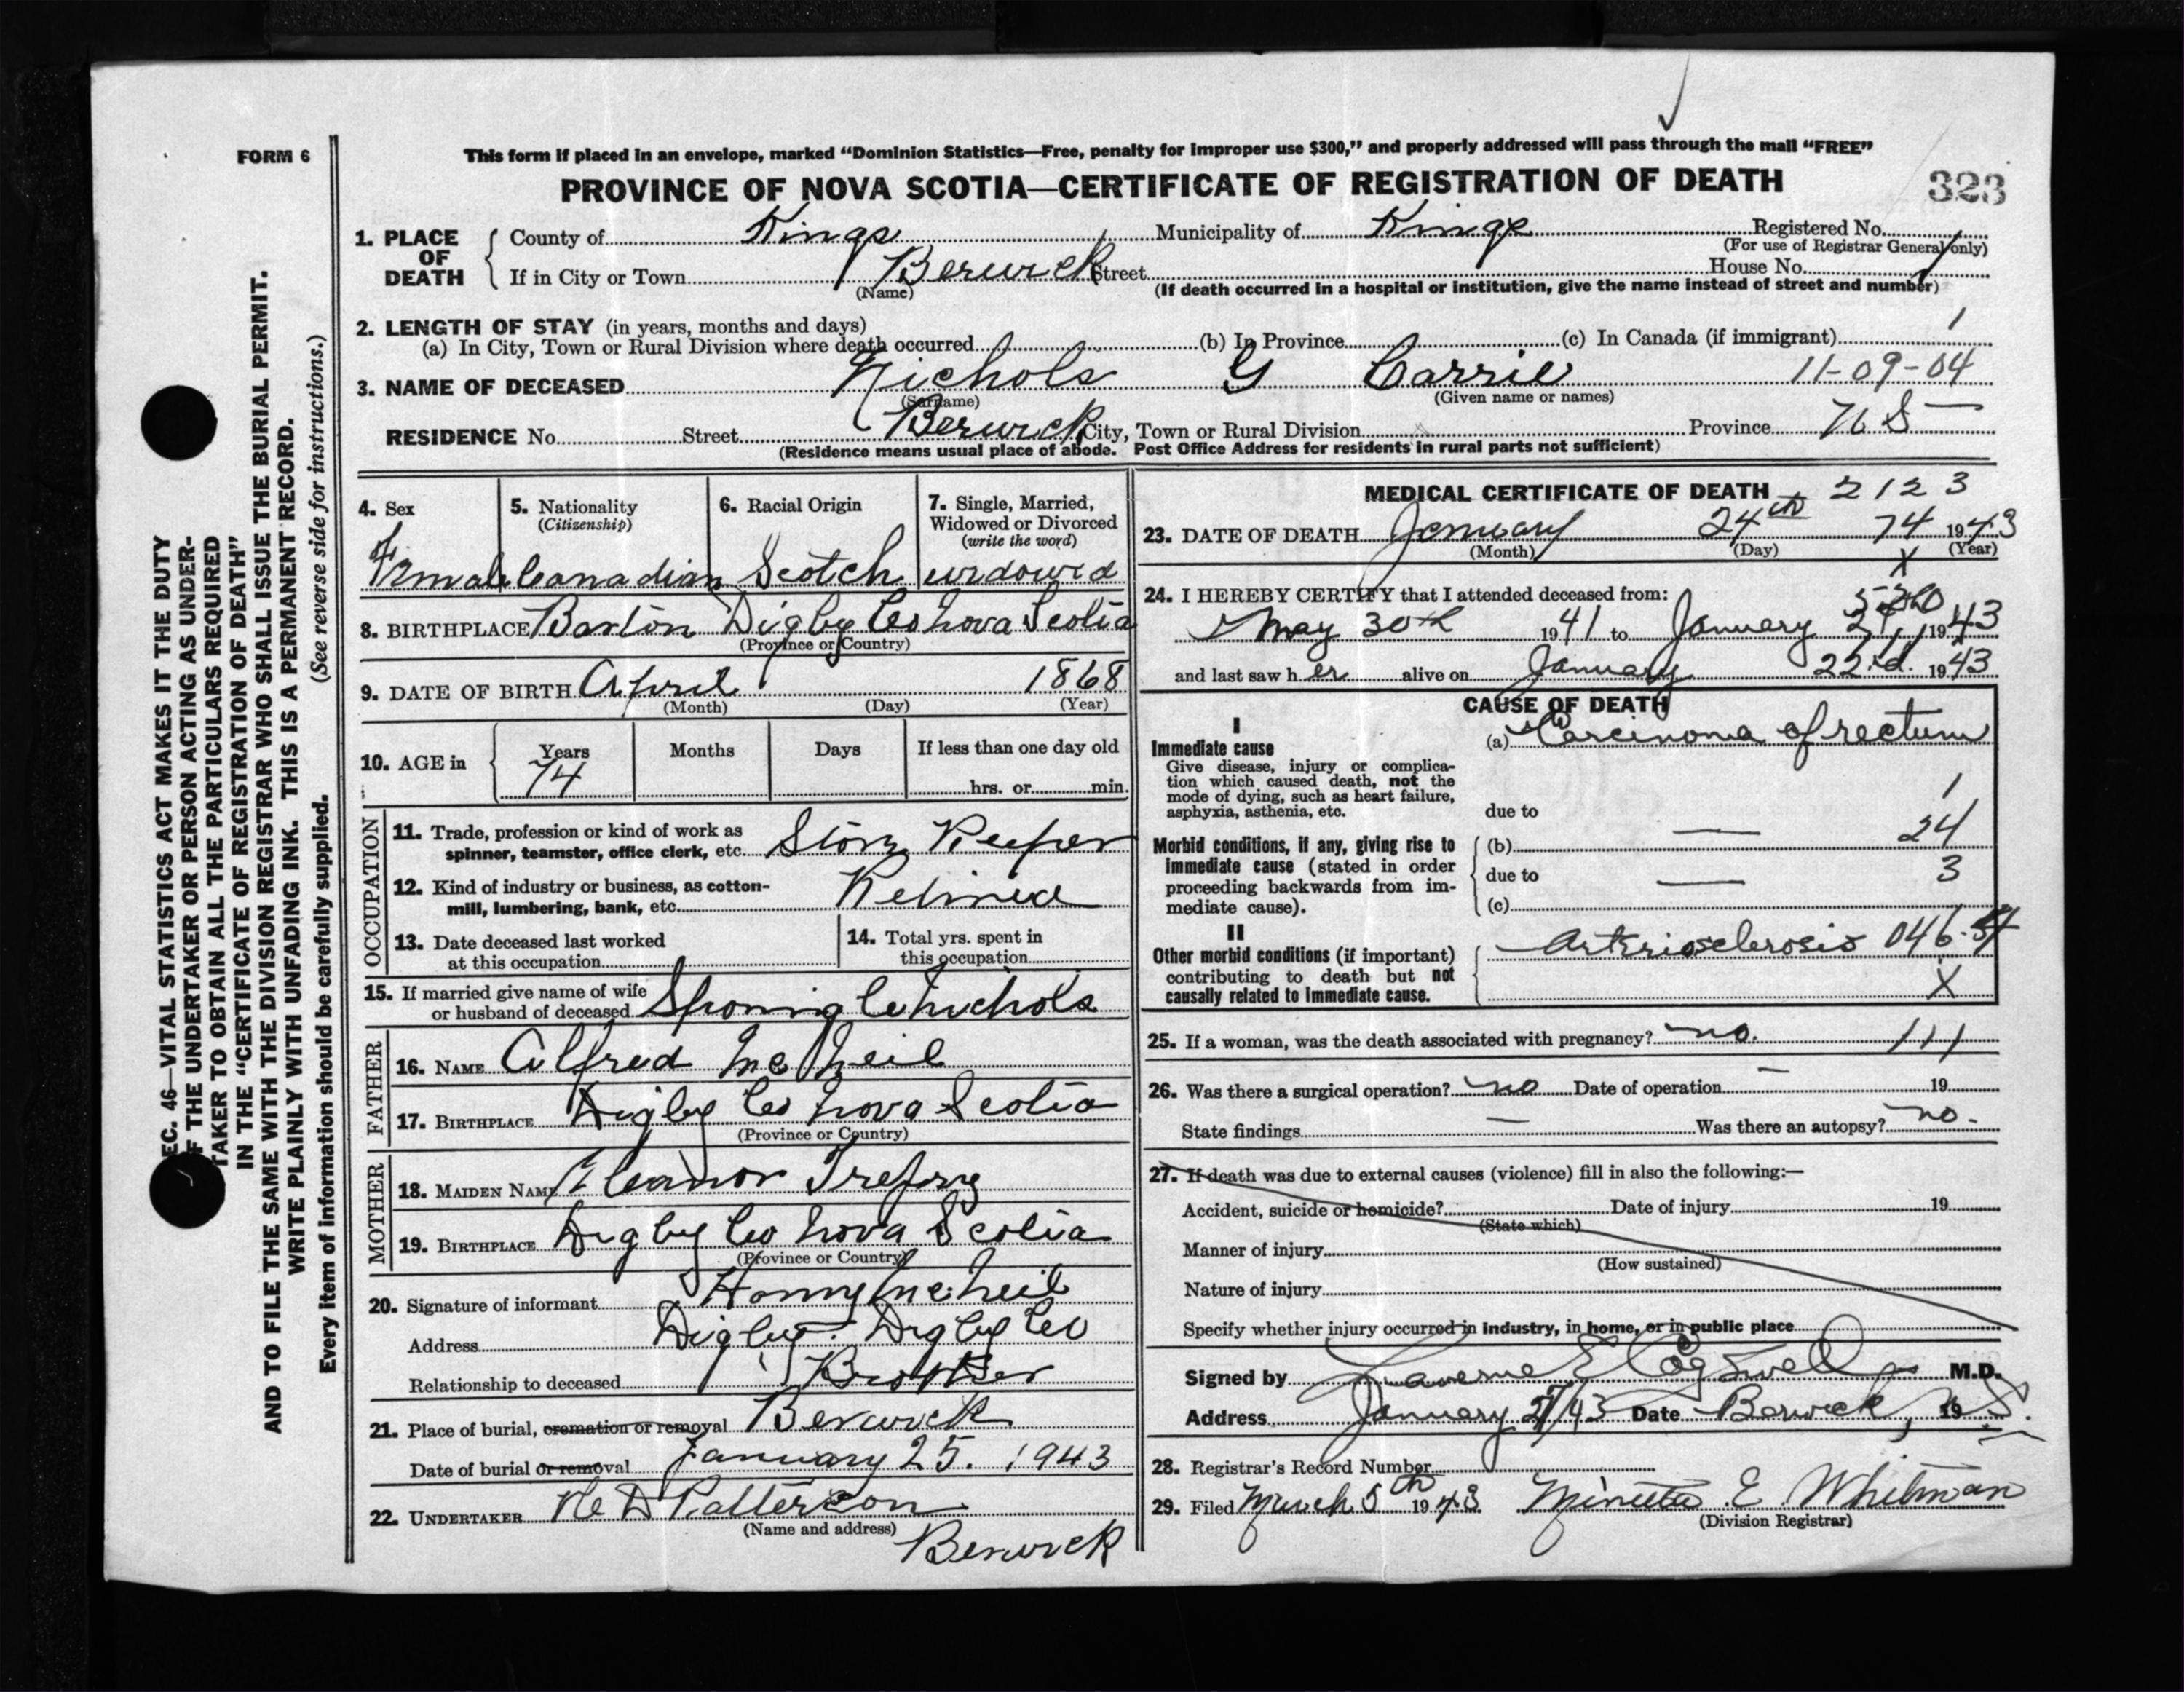 FORM 6
This form if placed in an envelope, marked “Dominion Statistics—Free, penalty for improper use $300,” and properly addressed will pass through the mail “FREE”
PROVINCE OF NOVA SCOTIA—CERTIFICATE OF REGISTRATION OF DEATH
323
1. PLACE OF DEATH
County of Kings Municipality of Kings Registered No.
(For use of Registrar General only)
If in City or Town Berwick Street House No.
(Name) (If death occurred in a hospital or institution, give the name instead of street and number)
2. LENGTH OF STAY (in years, months and days)
1
(a) In City, Town or Rural Division where death occurred (b) In Province (c) In Canada (if immigrant)
3. NAME OF DECEASED Nichols G Carrie 11-09-04
(Surname) (Given name or names)
RESIDENCE No. Street Berwick City, Town or Rural Division Province N S
(Residence means usual place of abode. Post Office Address for residents in rural parts not sufficient)
4. Sex Female
5. Nationality (Citizenship) Canadian
6. Racial Origin Scotch
7. Single, Married, Widowed or Divorced (write the word) widowed
8. BIRTHPLACE Barton Digby Co Nova Scotia
(Province or Country)
9. DATE OF BIRTH April 1868
(Month) (Day) (Year)
10. AGE in Years Months Days If less than one day old
74 hrs. or min.
OCCUPATION
11. Trade, profession or kind of work as spinner, teamster, office clerk, etc. Store Keeper
12. Kind of industry or business, as cotton-mill, lumbering, bank, etc. Retired
13. Date deceased last worked at this occupation
14. Total yrs. spent in this occupation
15. If married give name of wife or husband of deceased Nichols
FATHER
16. NAME Alfred Mc Neil
17. BIRTHPLACE Digby Co Nova Scotia
(Province or Country)
MOTHER
18. MAIDEN NAME Eleanor
19. BIRTHPLACE Digby Co Nova Scotia
(Province or Country)
20. Signature of informant Harry McNeil
Address Digby Digby Co
Relationship to deceased Brother
21. Place of burial, cremation or removal Berwick
Date of burial or removal January 25. 1943
22. UNDERTAKER Patterson
(Name and address) Berwick
MEDICAL CERTIFICATE OF DEATH 2123
23. DATE OF DEATH January 24th 74 1943
(Month) (Day) (Year)
X
24. I HEREBY CERTIFY that I attended deceased from:
May 30th 1941 to January 24, 1943
and last saw her alive on January 22rd. 1943
CAUSE OF DEATH
I
Immediate cause
Give disease, injury or complication which caused death, not the mode of dying, such as heart failure, asphyxia, asthenia, etc.
(a) Carcinoma of rectum
1
due to
Morbid conditions, if any, giving rise to immediate cause (stated in order proceeding backwards from immediate cause).
(b) — 24
due to 3
(c) —
II
Other morbid conditions (if important) contributing to death but not causally related to immediate cause.
Arteriosclerosis 046.
X
25. If a woman, was the death associated with pregnancy? no. 111
26. Was there a surgical operation? no Date of operation — 19
State findings — Was there an autopsy? no.
27. If death was due to external causes (violence) fill in also the following:—
Accident, suicide or homicide? Date of injury 19
(State which)
Manner of injury
(How sustained)
Nature of injury
Specify whether injury occurred in industry, in home, or in public place
Signed by Laverne E Cogswell M.D.
Address January 27/43 Date Berwick, 19 N.S.
28. Registrar's Record Number
29. Filed March 5th 1943 Minetta E Whitman
(Division Registrar)
EC. 46—VITAL STATISTICS ACT MAKES IT THE DUTY
F THE UNDERTAKER OR PERSON ACTING AS UNDER-
TAKER TO OBTAIN ALL THE PARTICULARS REQUIRED
IN THE “CERTIFICATE OF REGISTRATION OF DEATH”
AND TO FILE THE SAME WITH THE DIVISION REGISTRAR WHO SHALL ISSUE THE BURIAL PERMIT.
WRITE PLAINLY WITH UNFADING INK. THIS IS A PERMANENT RECORD.
Every item of information should be carefully supplied. (See reverse side for instructions.)